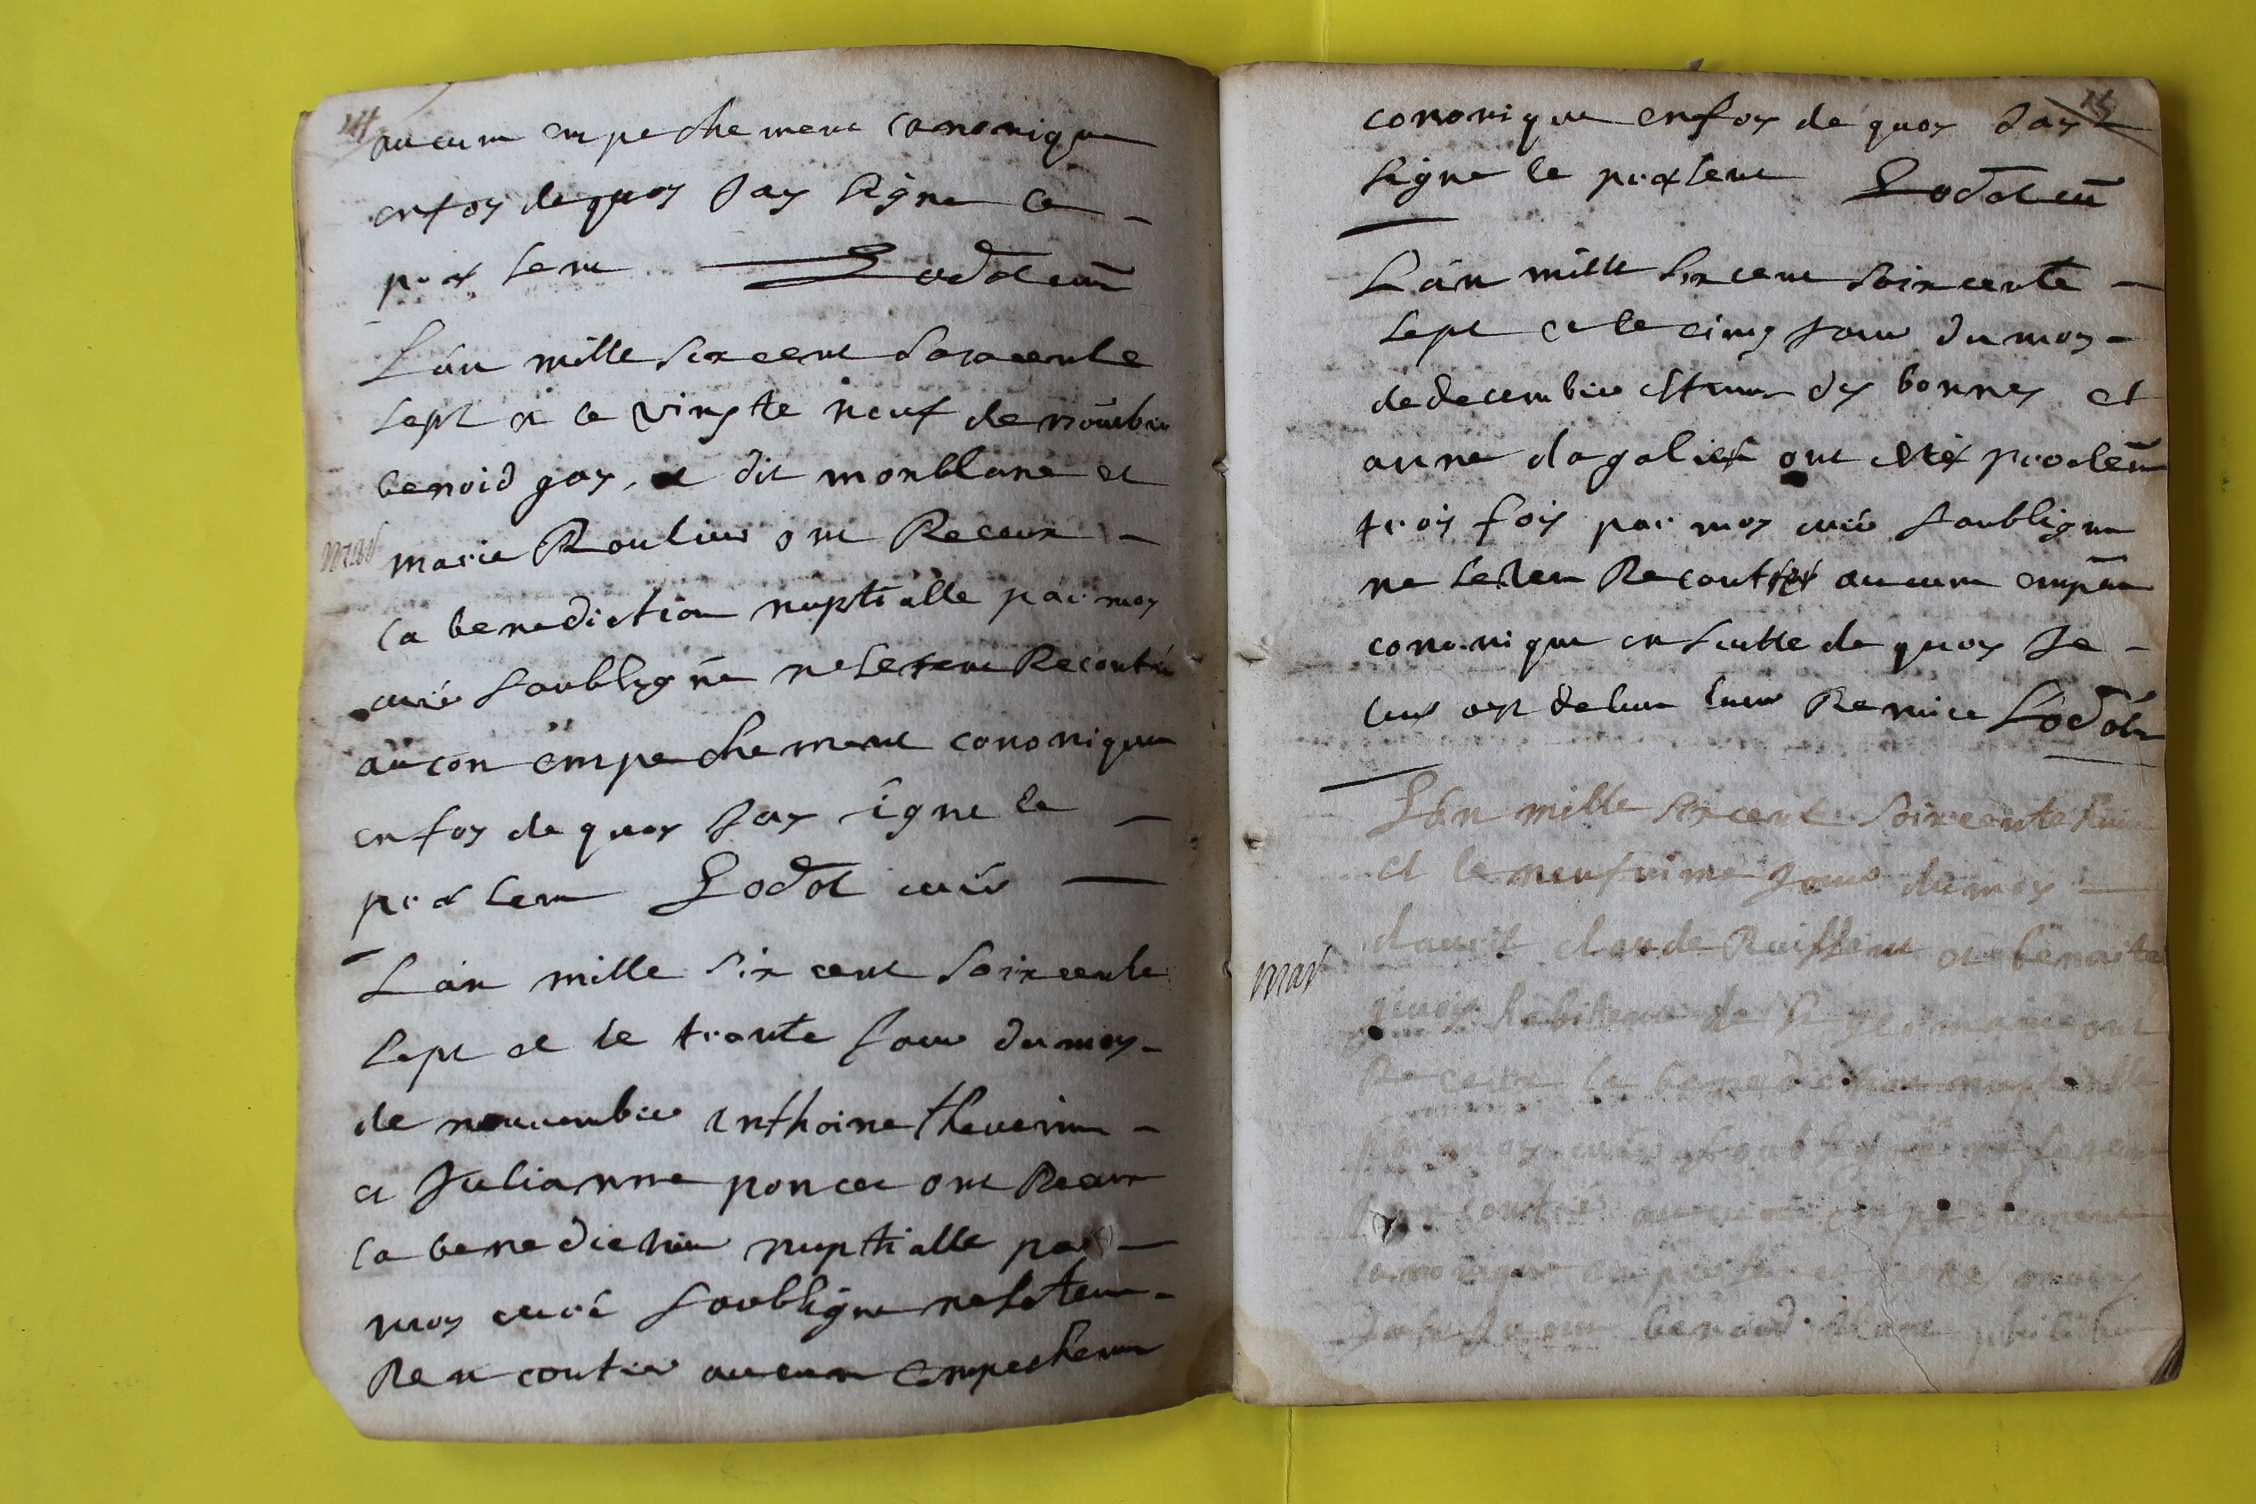 14
aucun empechement canonique
en foy de quoy Jay signe le
present Godot curé
L'an mille six cent soixcente
sept et le vingte neuf de novembre
benoid gay, et dit monblanc et
mar
marie Roulier ont Receux
la benediction nuptialle par moy
curé soubsigné ne sestent Recontré
aucon empechement cononique
en foy de quoy Jay signe le
present Godot curé
L'an mille six cent soixcente
sept et le trente Jour du moy
de nouembre anthoine theuenin
et Julianne poncet ont Receux
la benediction nuptialle par
moy curé soubsigne ne sestent
Rencontré aucun empechement
15
cononique en foy de quoy Jay
signe le present Godot curé
L'an mille six cent soixcente
sept et le cinq Jour du moy
de decembre des bonnes et
anne dagalier ont
trois fois par moy curé soubsigne
ne sestent Recontré aucum
cononique ensuitte de quoy Je
leur ay Remice Godot
L'an mille six cent soixcente huit
et le neufvime Jour du moy
dauril claude Ruiffent et benoite
mar
habitent de ont
Receux la benediction nuptialle
par moy curé soubsigné ne sestent
Rencontré aucun empechement
canonique
benoid